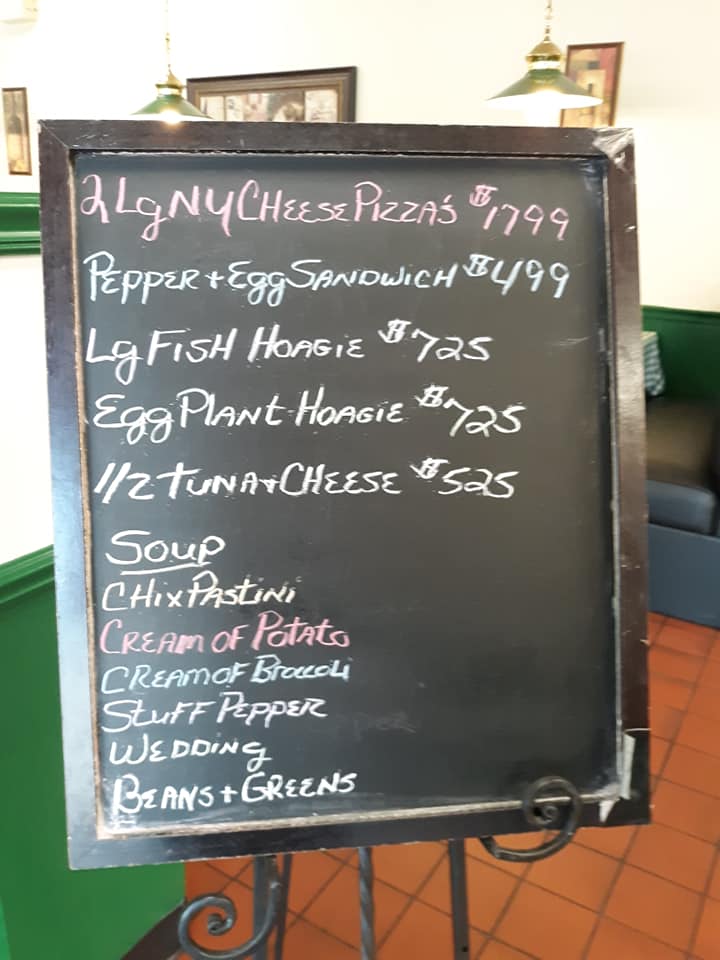 2 Lg NY CHEESE PIZZA'S $1799
PEPPER + Egg SANDWICH $499
Lg FISH HOAGIE $725
Egg PLANT HOAGIE $725
1/2 TUNA + CHEESE $525
SOUP
CHIX PASTINI
CREAM OF POTATO
CREAM OF Broccoli
STUFF PEPPER
WEDDING
BEANS + GREENS